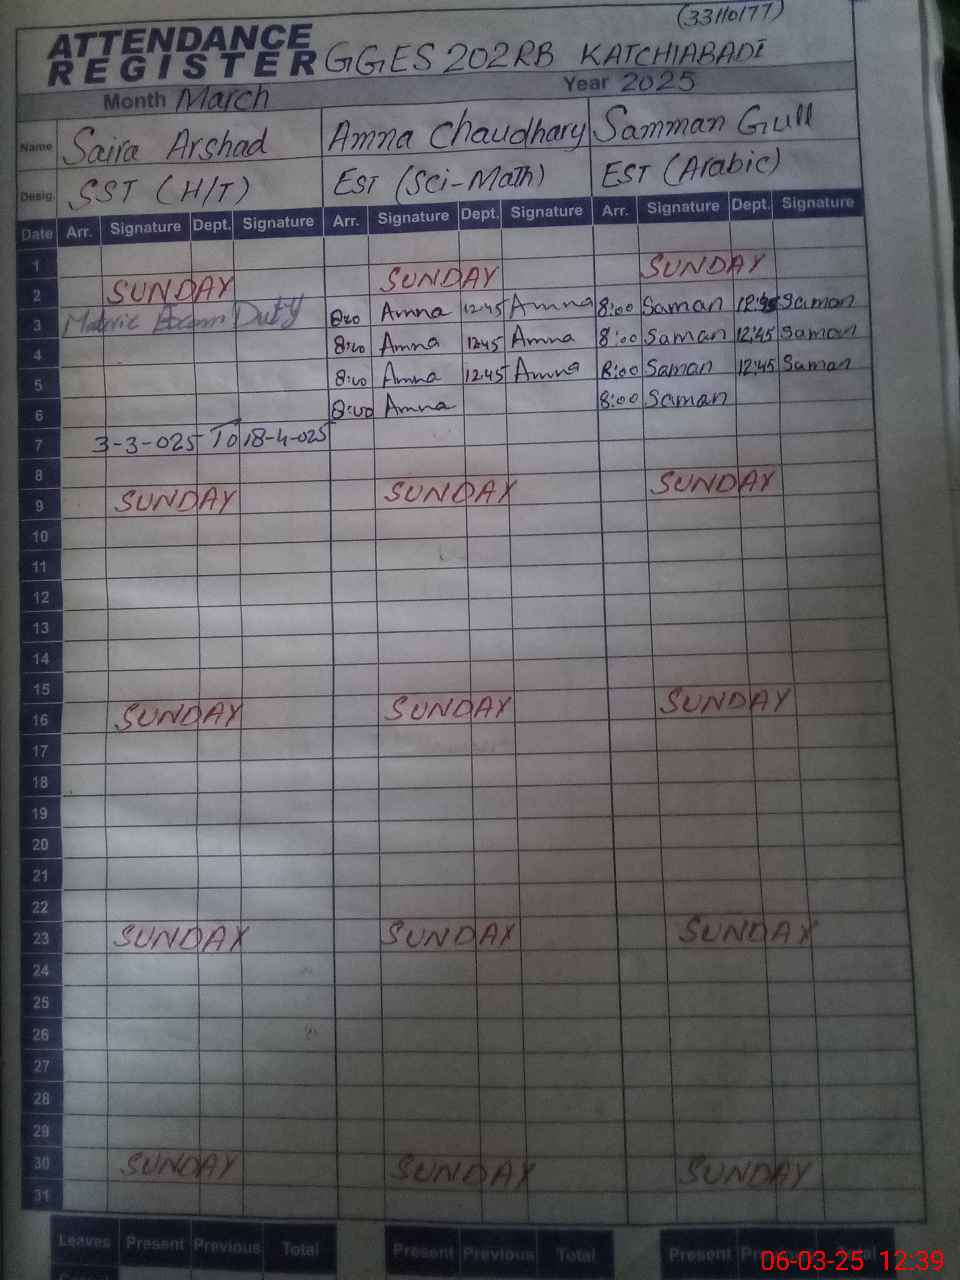 (33110177)
ATTENDANCE
REGISTER GGES 202RB KATCHIABADI
Month March Year 2025
Name Saira Arshad Amna Chaudhary Samman Gull
Desig. SST (H/T) EST (Sci-Math) EST (Arabic)
Date Arr. Signature Dept. Signature Arr. Signature Dept. Signature Arr. Signature Dept. Signature
1
2 SUNDAY SUNDAY SUNDAY
3 Matric Exam Duty 8:00 Amna 12:45 Amna 8:00 Saman 12:45 Saman
4 8:00 Amna 12:45 Amna 8:00 Saman 12:45 Saman
5 8:00 Amna 12:45 Amna 8:00 Saman 12:45 Saman
6 8:00 Amna 8:00 Saman
7 3-3-025 To 18-4-025
8
9 SUNDAY SUNDAY SUNDAY
10
11
12
13
14
15
16 SUNDAY SUNDAY SUNDAY
17
18
19
20
21
22
23 SUNDAY SUNDAY SUNDAY
24
25
26
27
28
29
30 SUNDAY SUNDAY SUNDAY
31
Leaves Present Previous Total Present Previous Total Present Previous Total
06-03-25 12:39